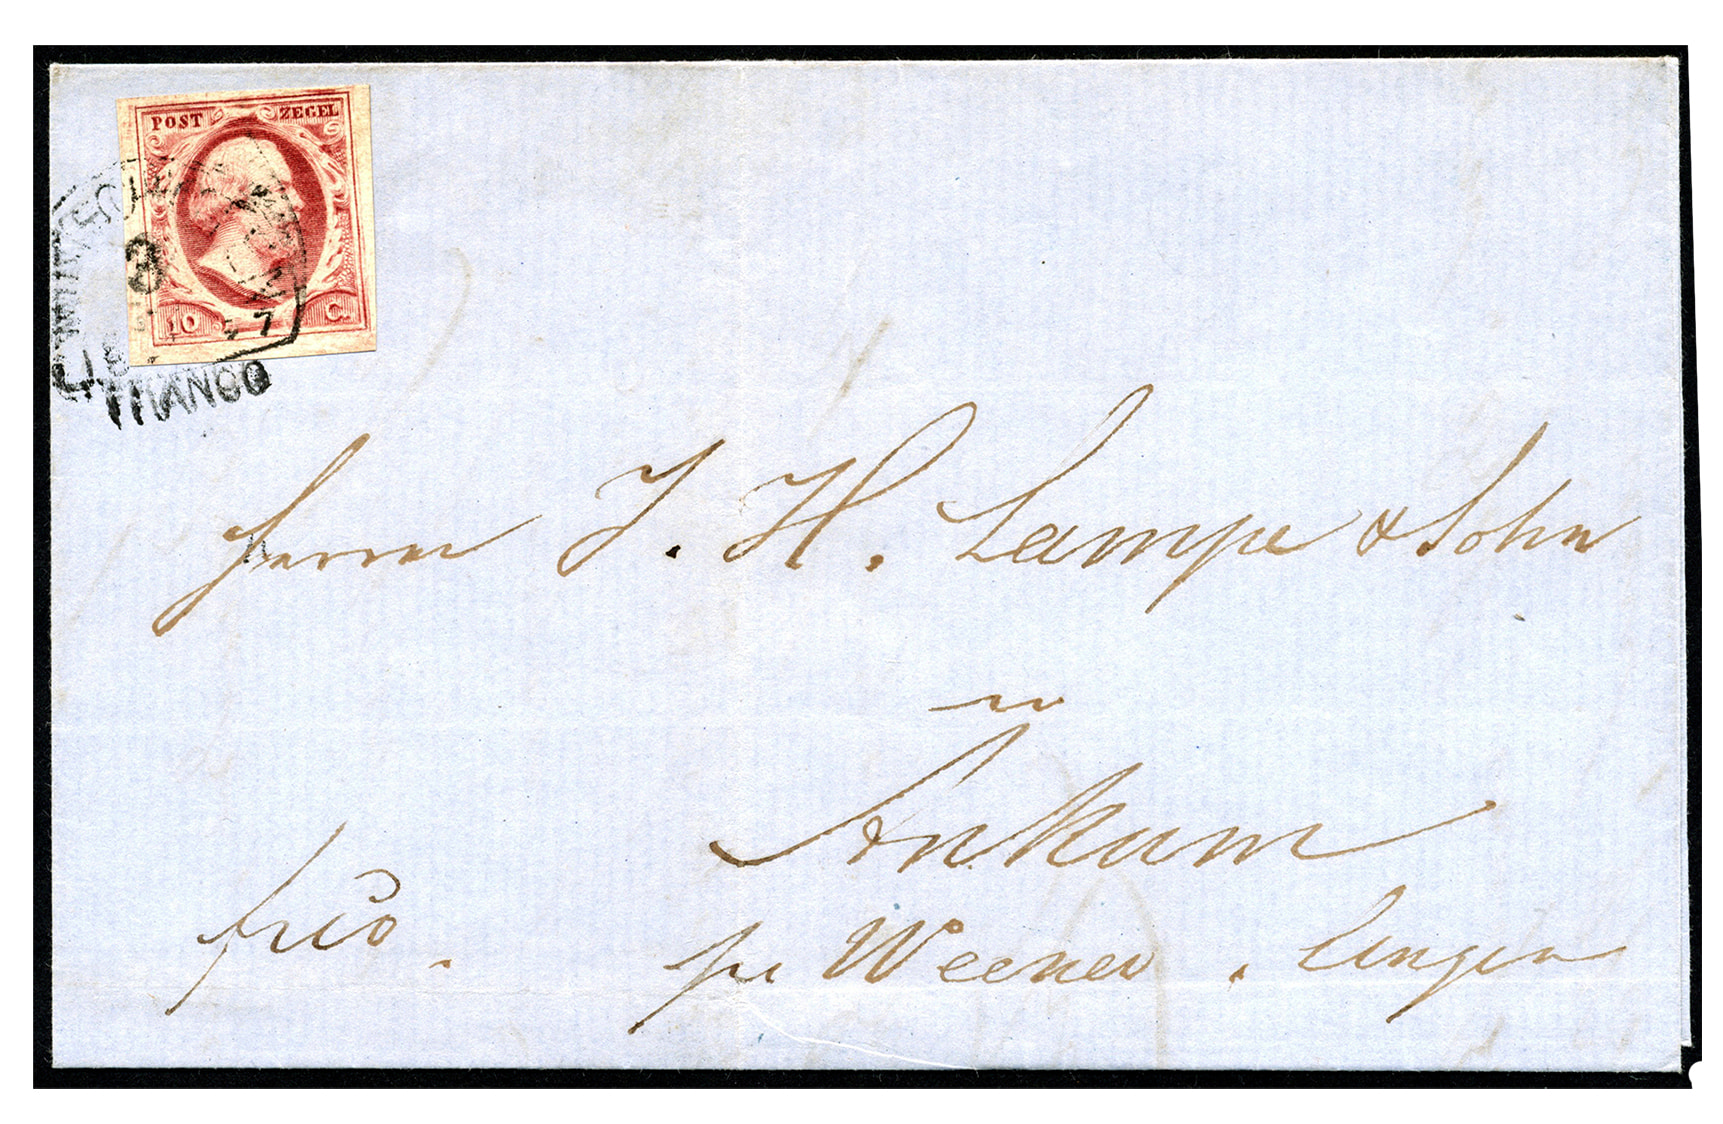 POST ZEGEL
10 C.
3
57
FRANCO
Herren J. H. Lampe & Sohn
Ankum
frco.
pr Weener. Lingen